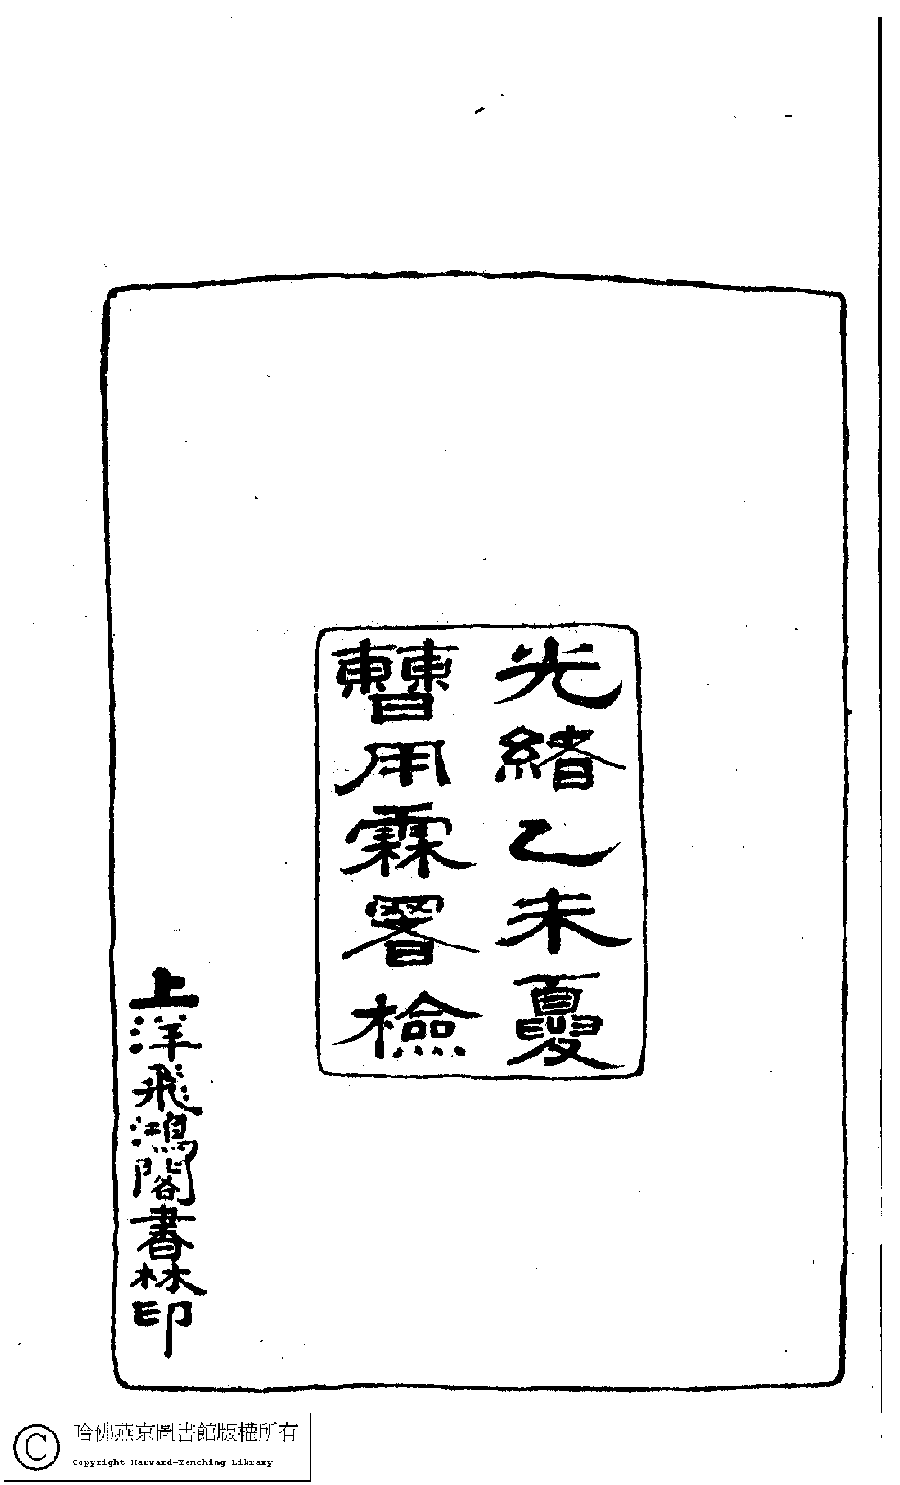 光緒乙未夏
曹用霖署檢
上洋飛鴻閣書林印
哈佛燕京圖書館版權所有
Copyright Harvard-Yenching Library